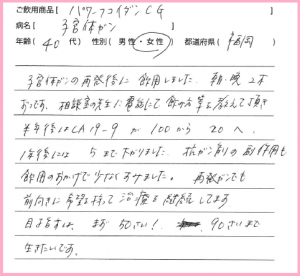 ご飲用商品【 パワーフコイダンCG 】
病名【 子宮体ガン 】
年齢( 40 代) 性別( 男性・女性 ) 都道府県( 福岡 )
子宮体ガンの再発後に飲用しました。朝・晩2本
ずつです。相談室の先生に電話にて飲み方等を教えて頂き
半年後にはCA19-9が100から20へ。
1年後には5まで下がりました。抗がん剤の副作用も
飲用のおかげで少なくすみました。再発ガンでも
前向きに希望を持って治療を継続してます
目ざすは、まず50さい! 90さいまで
生きたいです。